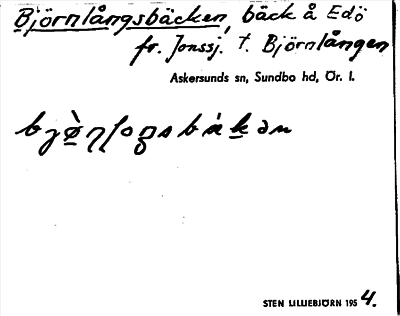 Björnlångsbäcken, bäck å Edö
fr. Jonssj. t. Björnlången
Askersunds sn, Sundbo hd, Ör. l.
STEN LILLIEBJÖRN 1954.